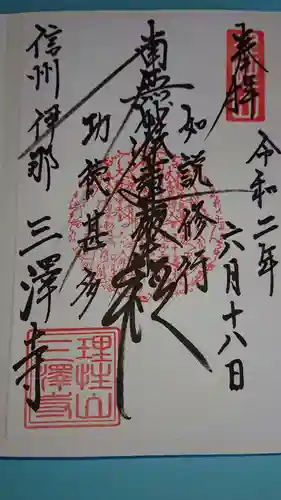 奉拝
令和二年
六月十八日
如説修行
南無妙法蓮華経
功徳甚多
信州伊那
三澤寺
理性山
三澤寺